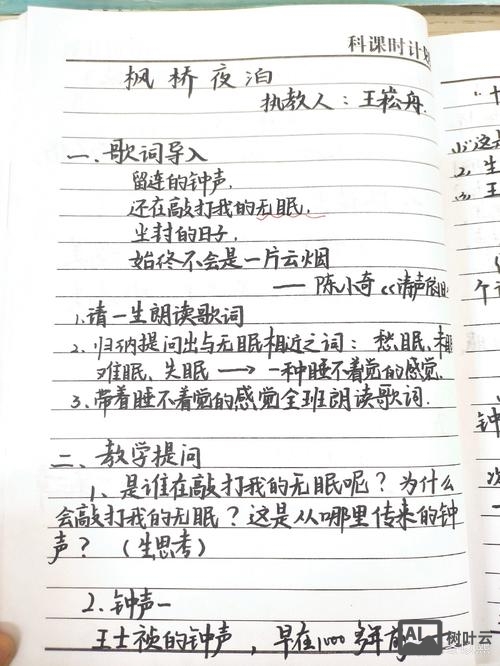 科课时计划
枫桥夜泊
执教人：王崧舟.
一、歌词导入
留连的钟声,
还在敲打我的无眠,
尘封的日子,
始终不会是一片云烟
—— 陈小奇《涛声依旧
1.请一生朗读歌词
2.归纳提问出与无眠相近之词：愁眠、未眠
难眠、失眠 → 一种睡不着觉的感觉.
3.带着睡不着觉的感觉全班朗读歌词.
二、教学提问
1、是谁在敲打我的无眠呢？为什么
会敲打我的无眠？这是从哪里传来的钟
声？（生思考）
2.钟声一
王士祯的钟声，早在1000多年前
个
钟
次
AI
树叶云